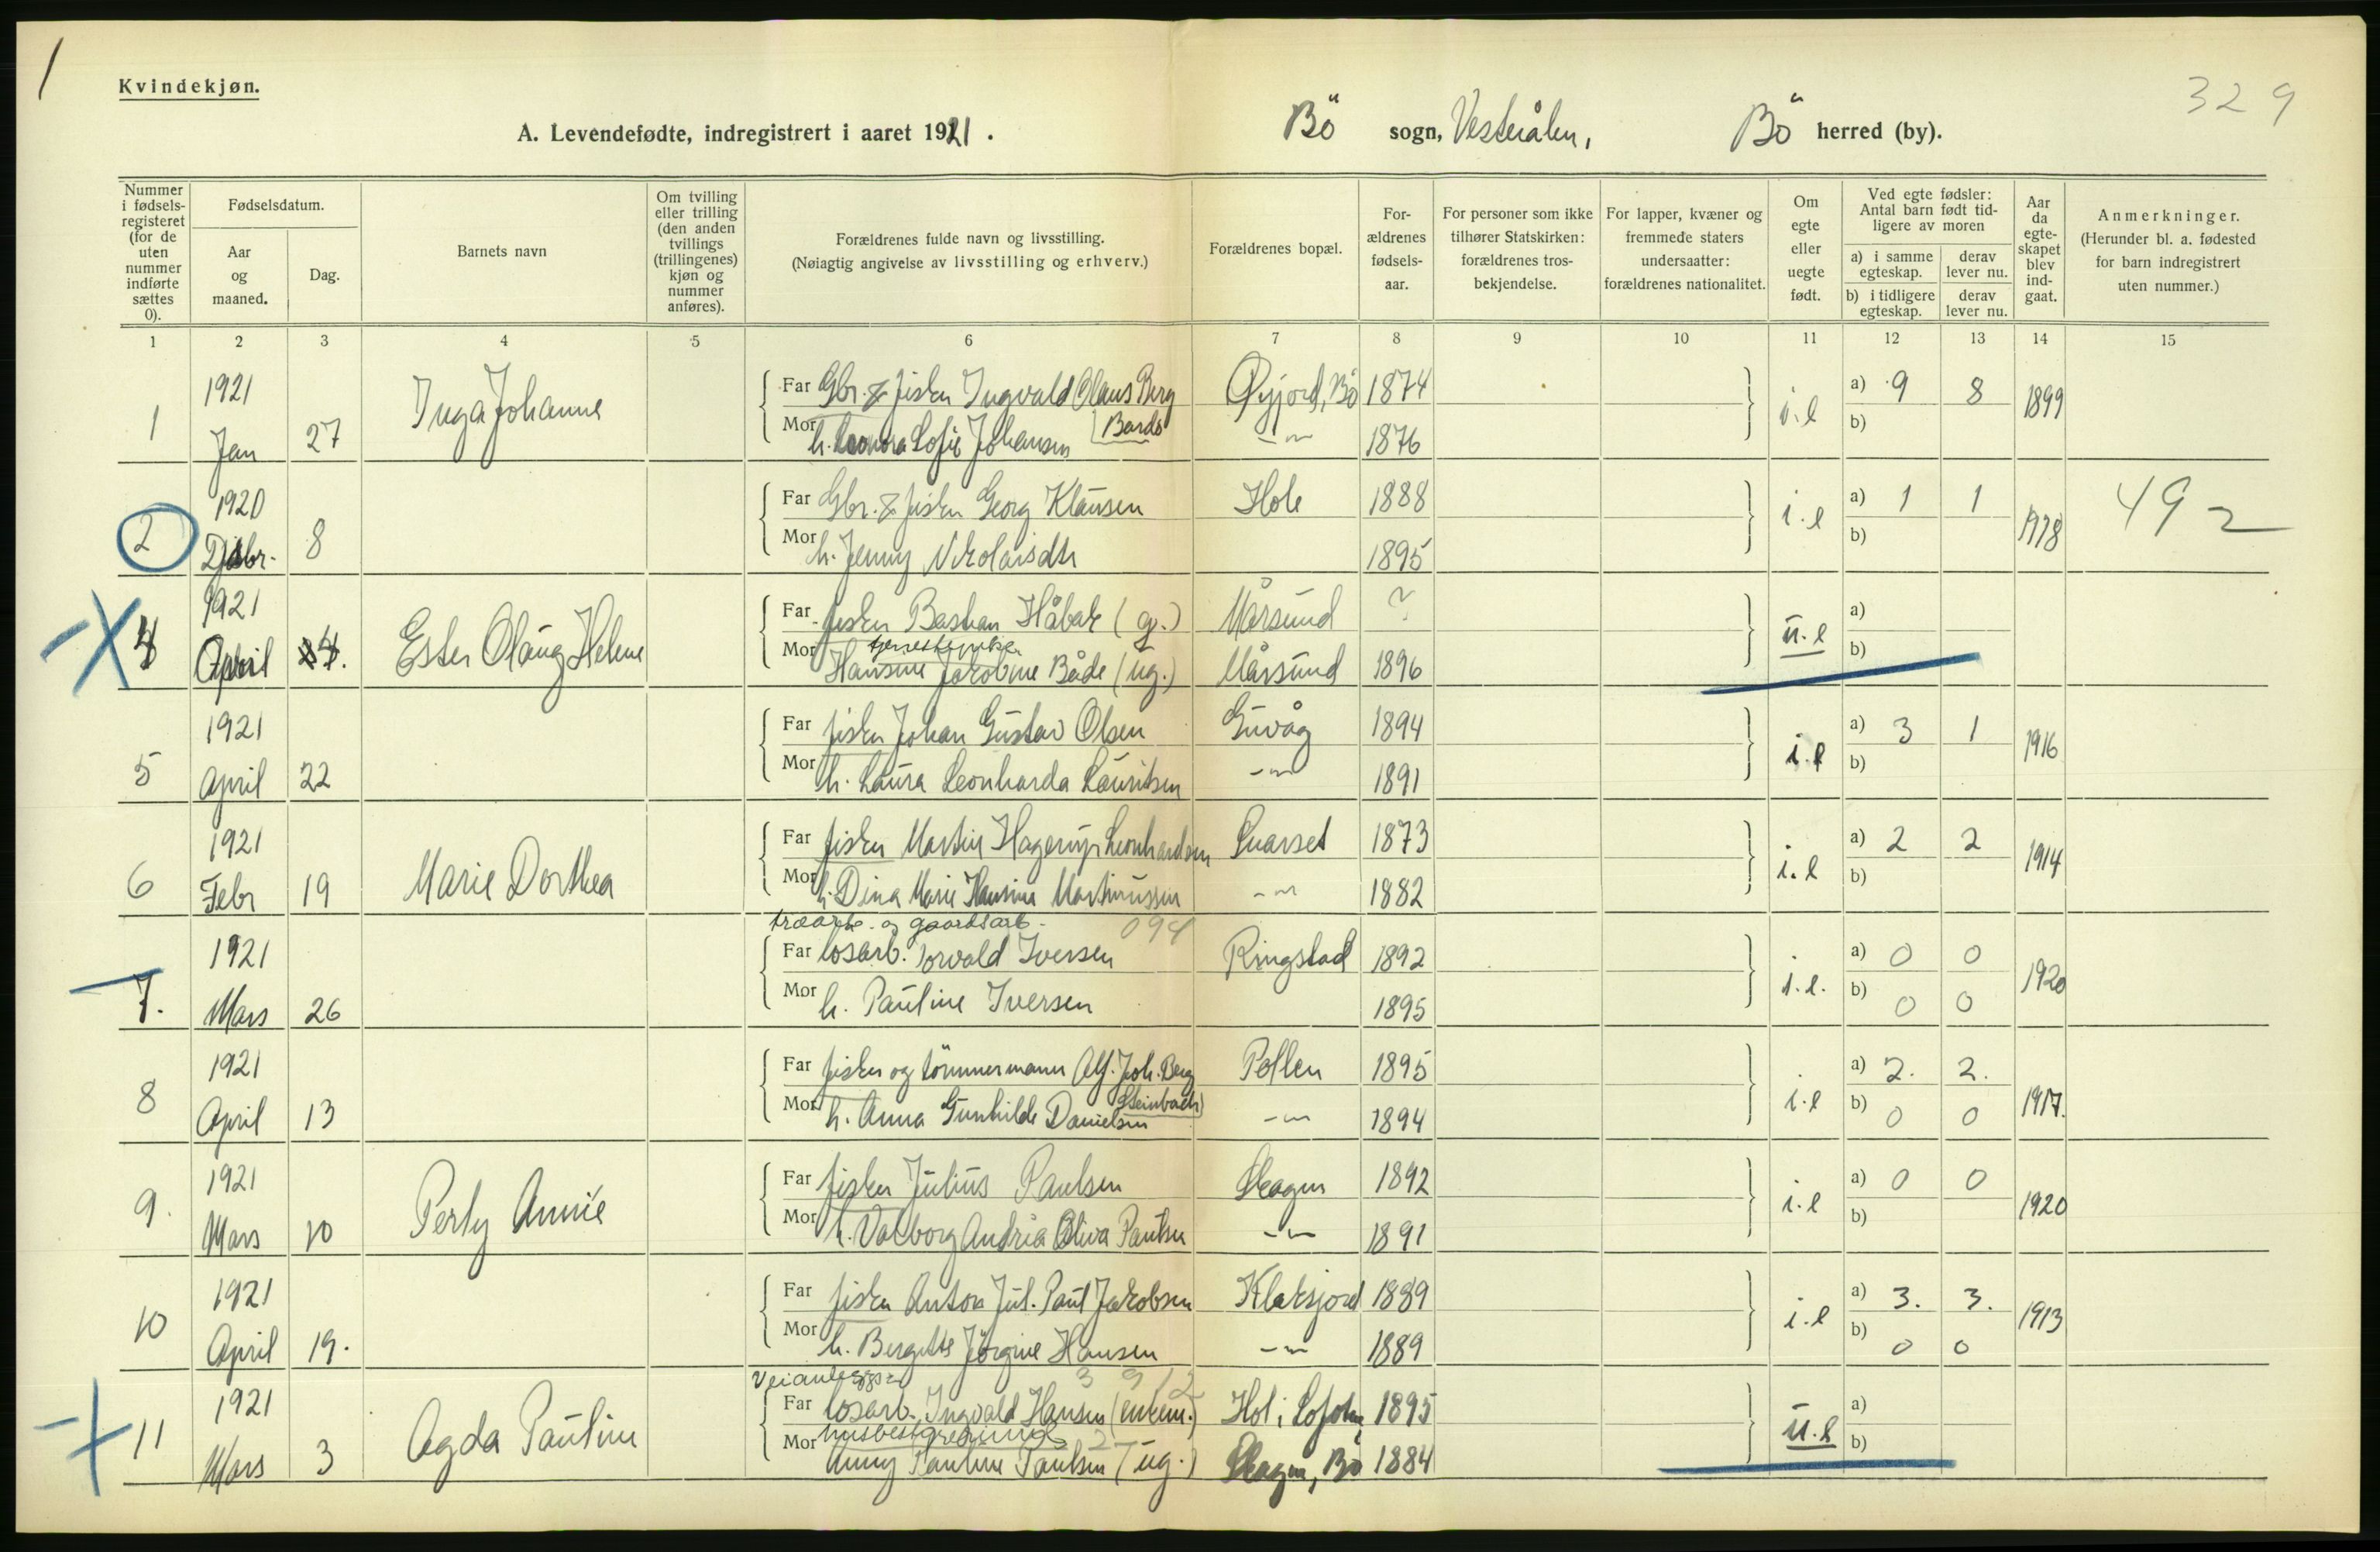 1
Kvindekjøn.
329
A. Levendefødte, indregistrert i aaret 1921.
Bö sogn, Vesterålen, Bö herred (by).
Nummer i fødsels-registeret (for de uten nummer indførte sættes 0).
Fødselsdatum.
Aar og maaned.
Dag.
Barnets navn
Om tvilling eller trilling (den anden tvillings (trillingenes) kjøn og nummer anføres).
Forældrenes fulde navn og livsstilling.
(Nøiagtig angivelse av livsstilling og erhverv.)
Forældrenes bopæl.
For-ældrenes fødsels-aar.
For personer som ikke tilhører Statskirken: forældrenes tros-bekjendelse.
For lapper, kvæner og fremmede staters undersaatter: forældrenes nationalitet.
Om egte eller uegte født.
Ved egte fødsler: Antal barn født tid-ligere av moren
a) i samme egteskap.
derav lever nu.
b) i tidligere egteskap.
derav lever nu.
Aar da egte-skapet blev ind-gaat.
Anmerkninger.
(Herunder bl. a. fødested for barn indregistrert uten nummer.)
1 2 3 4 5 6 7 8 9 10 11 12 13 14 15
1921 Far Gbr. & fisker Ingvald Olaus Berg Øyjord, Bö 1874 a) 9 8
1 Jan 27 Inga Johanne i.e 1899
Mor h. Leonora Sofie Johansen Bardo -"- 1876 b)
1920 Far Gbr. & fisker Georg Klausen Hole 1888 a) 1 1
2 Dsbr. 8 i.e 49 2
Mor h. Jenny Nikolaisdtr 1895 b)
1921 Far fisker Bastian Håbak (g.) Mårsund ? a)
4 April 4. Ester Olaug Helene u.e
Mor Hansine Jakobine Både (ug.) Mårsund 1896 b)
1921 Far fisker Johan Gustav Olsen Guvåg 1894 a) 3 1
5 April 22 i.e 1916
Mor h. Laura Leonharda Lauritsen -"- 1891 b)
1921 Far fisker Martin Hagerup Leonhardsen 1873 a) 2 2
6 Febr 19 Marie Dorthea i.e 1914
Mor h. Dina Marie Hansine Martinussen -"- 1882 b)
og gaardsarb. 094
1921 Far losarb. Torvald Iversen Ringstad 1892 a) 0 0
7. Mars 26 i.e. 1920
Mor h. Pauline Iversen 1895 b) 0 0
1921 Far fisker og tömmermann Alf. Joh. Berg Pollen 1895 a) 2. 2.
8 April 13 (Steinbach) i.e 1917.
Mor h. Anna Gunhilde Danielsen -"- 1894 b) 0 0
1921 Far fisker Julius Paulsen Skagen 1892 a) 0 0
9. Mars 10 Perly Annie i.e 1920
Mor h. Valborg Andria Oliva Paulsen -"- 1891 b)
1921 Far fisker Anton Jul. Paul Jakobsen Klaksjord 1889 a) 3. 3.
10 April 19. i.e 1913
Mor h. Bergitte Jörgine Hansen -"- 1889 b) 0 0
1921 Far losarb. Ingvald Hansen (enkem.) Hol i Lofoten 1895 a)
11 Mars 3 Agda Pauline u.e
Mor Anny Pauline Paulsen (ug.) Skagen, Bö 1884 b)